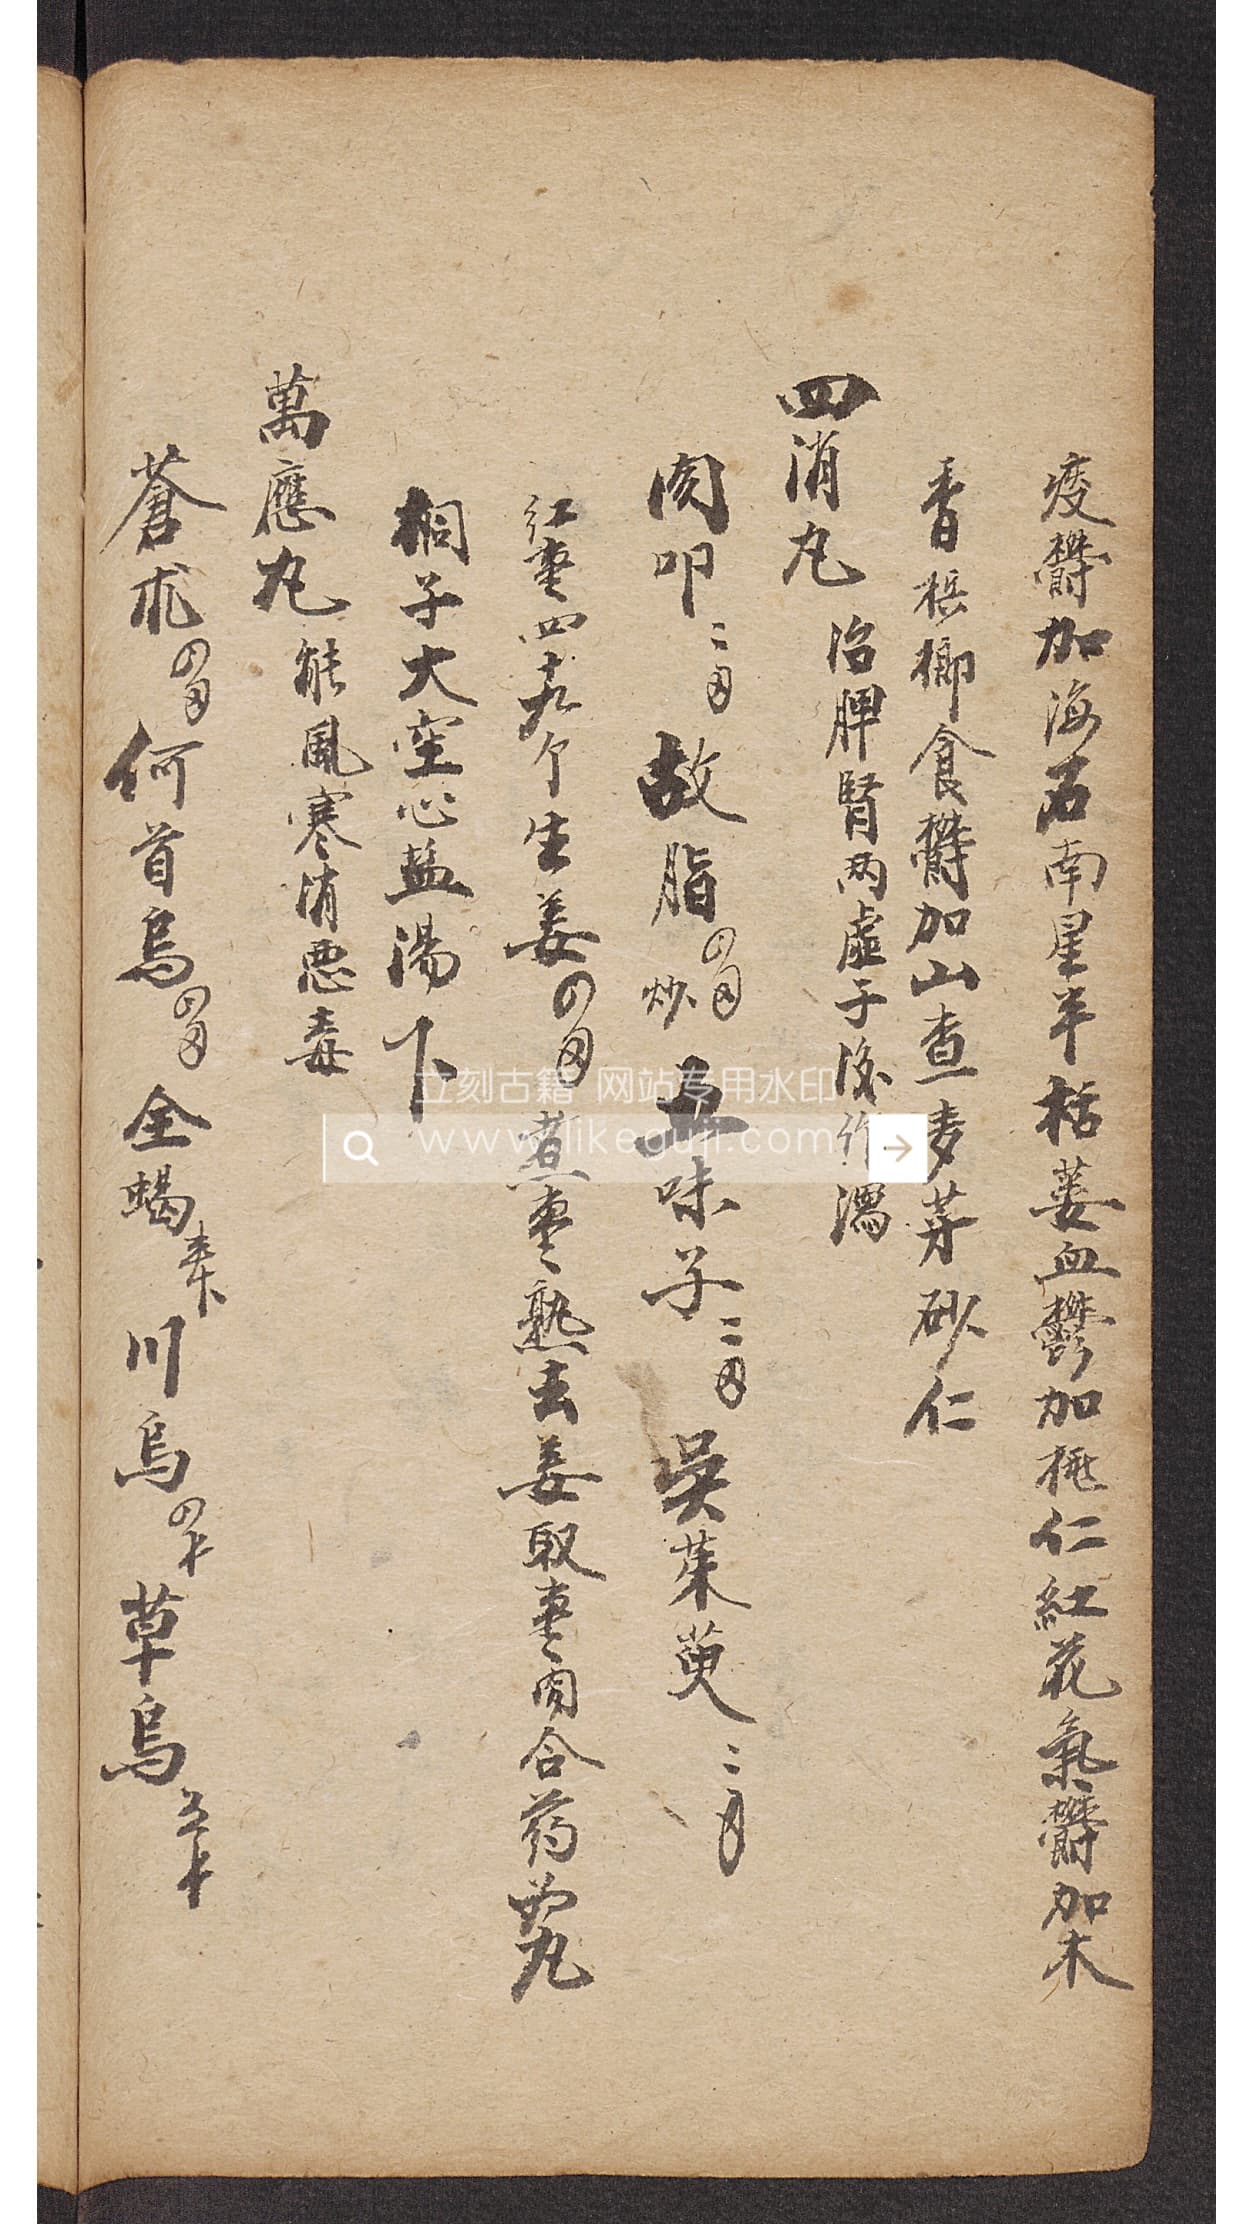 疫欝加海石南星半栝蒌血欝加桃仁紅花氣欝加木
香梹榔食欝加山查麦芽砂仁
四消丸 治脾腎兩虛子後作瀉
肉叩二両故脂四両炒五味子二両吳茱萸二両
红枣四十九个生姜四両煮枣熟去姜取枣肉合药為丸
桐子大空心盐湯下
萬應丸 能風寒消悪毒
蒼朮四両何首烏四両全蝎川烏四牛草烏五牛
立刻古籍 网站专用水印
www.likeguji.com